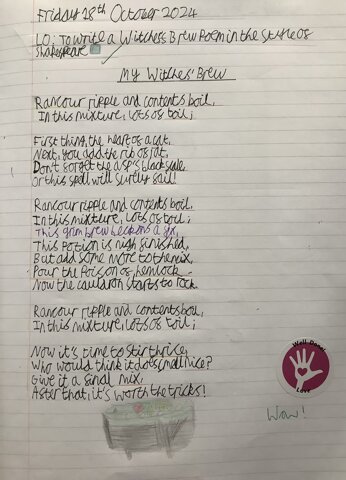 Friday 18th October 2024
LO: To write a Witches Brew Poem in the style of
Shakespeare
My Witches' Brew
Rancour ripple and contents boil,
In this mixture, lots of toil;
First thing, the heart of a cat,
Next, you add the rib of rat,
Don't forget the asp's black scale,
Or this spell will surely fail!
Rancour ripple and contents boil,
In this mixture, lots of toil;
This grim brew beckons a
This potion is nigh finished,
But add some more to the mix,
Pour the poison of hemlock
Now the cauldron starts to rock
Rancour ripple and contents boil,
In this mixture, lots of toil;
Now it's time to stir thrice,
Who would think it dots smell nice?
Give it a final mix,
After that, it's worth the tricks!
Well Done!
Love
Wow!